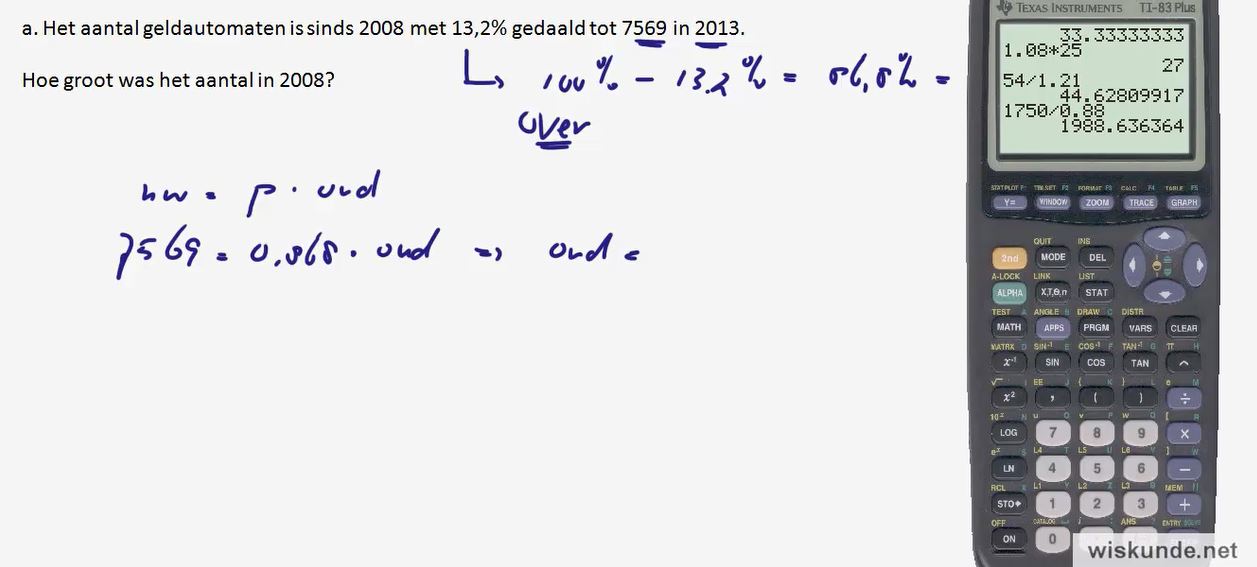 a. Het aantal geldautomaten is sinds 2008 met 13,2% gedaald tot 7569 in 2013.
Hoe groot was het aantal in 2008?
100% - 13.2% = 86,8% =
over
nw = p · oud
7569 = 0,868 · oud => oud =
TEXAS INSTRUMENTS TI-83 Plus
33.33333333
1.08*25
27
54/1.21
44.62809917
1750/0.88
1988.636364
STATPLOT F1 TBLSET F2 FORMAT F3 CALC F4 TABLE F5
Y= WINDOW ZOOM TRACE GRAPH
QUIT INS
2nd MODE DEL
A-LOCK LINK LIST
ALPHA X,T,Θ,n STAT
TEST A ANGLE B DRAW C DISTR
MATH APPS PRGM VARS CLEAR
MATRX D SIN⁻¹ E COS⁻¹ F TAN⁻¹ G π H
x⁻¹ SIN COS TAN ^
√ I EE J { K } L e M
x² , ( ) ÷
10ˣ N u O v P w Q [ R
LOG 7 8 9 ×
eˣ S L4 T L5 U L6 V ] W
LN 4 5 6 −
RCL X L1 Y L2 Z L3 θ MEM "
STO▸ 1 2 3 +
OFF CATALOG i : ANS ? ENTRY SOLVE
ON 0
wiskunde.net